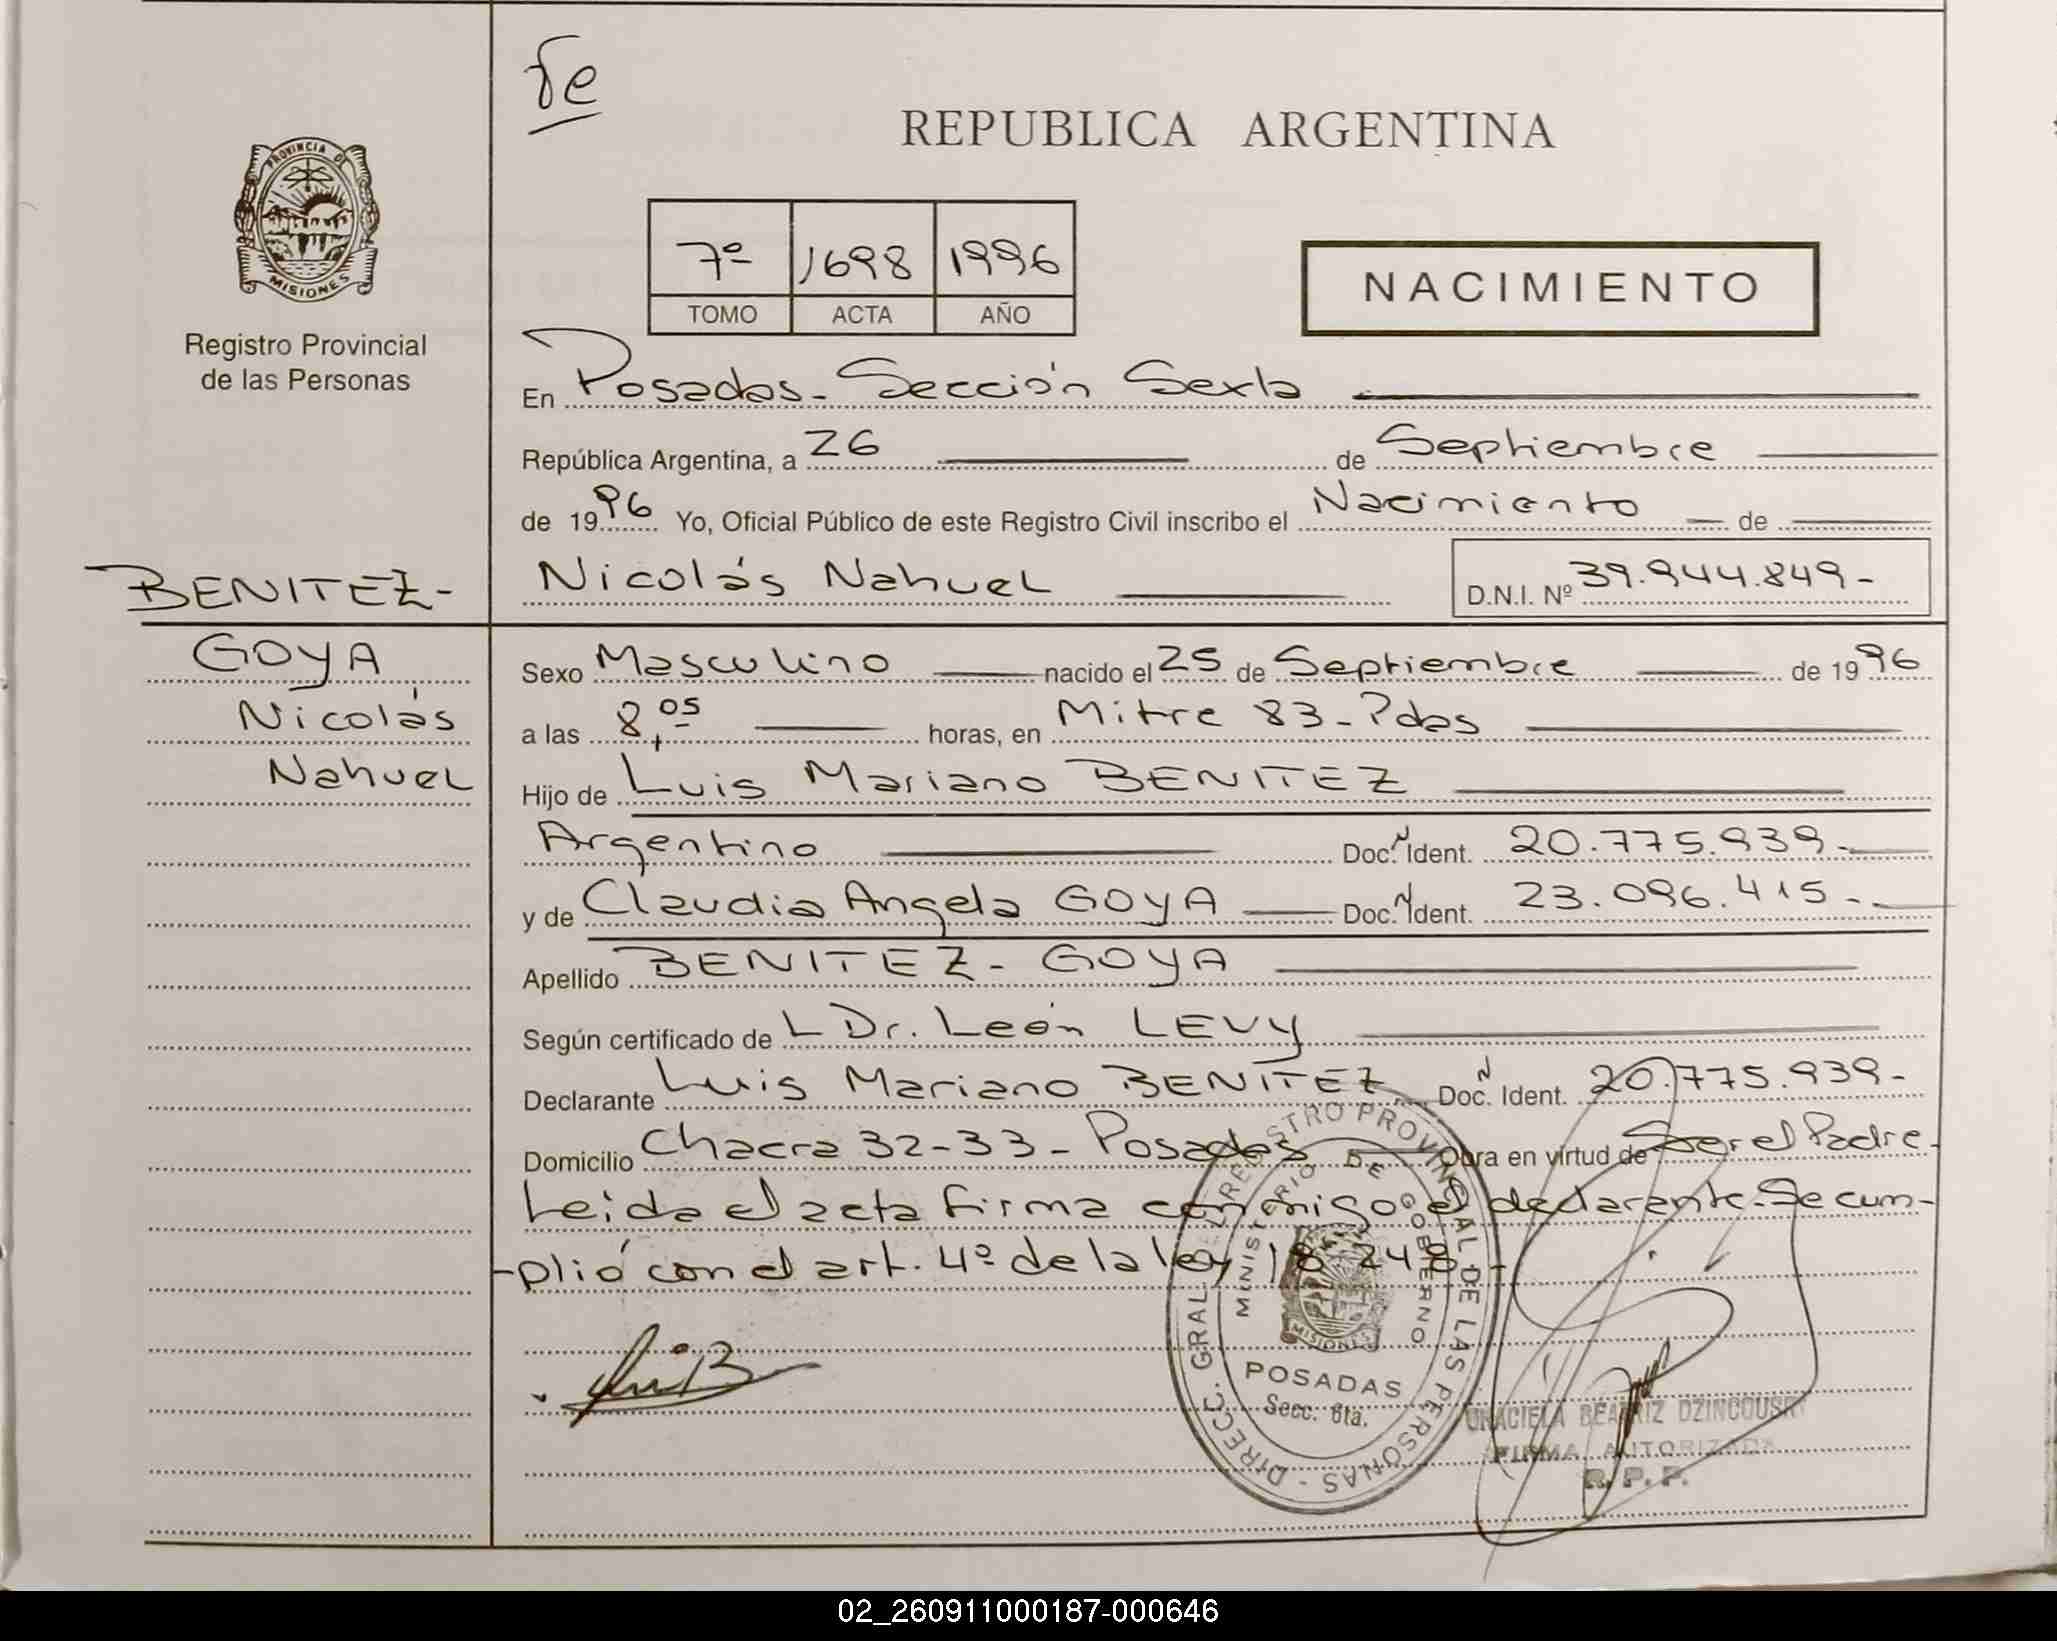 fe
REPUBLICA ARGENTINA
PROVINCIA DE
MISIONES
Registro Provincial
de las Personas
7º 1698 1996
TOMO ACTA AÑO
NACIMIENTO
En Posadas - Sección Sexta
República Argentina, a 26 de Septiembre
de 1996 Yo, Oficial Público de este Registro Civil inscribo el Nacimiento de
Nicolás Nahuel D.N.I. Nº 39.944.849-
BENITEZ-
GOYA
Nicolás
Nahuel
Sexo Masculino nacido el 25 de Septiembre de 1996
a las 8,05 horas, en Mitre 83 - Pdas
Hijo de Luis Mariano BENITEZ
Argentino Doc. N Ident. 20.775.939.-
y de Claudia Angela GOYA Doc. N Ident. 23.096.415.-
Apellido BENITEZ - GOYA
Según certificado de L Dr. León LEVY
Declarante Luis Mariano BENITEZ Doc. N Ident. 20.775.939-
Domicilio Chacra 32-33 - Posadas Obra en virtud de Ser el Padre.
Leida el acta firma conmigo el declarante. Se cum-
-plió con el art. 4º de la ley 18.248 -
DIRECC. GRAL. DEL REGISTRO PROVINCIAL DE LAS PERSONAS -
MINISTERIO DE GOBIERNO
MISIONES
POSADAS
Secc. 6ta.
GRACIELA BEATRIZ DZINCOUSR
FIRMA AUTORIZADA
R. P. P.
02_260911000187-000646